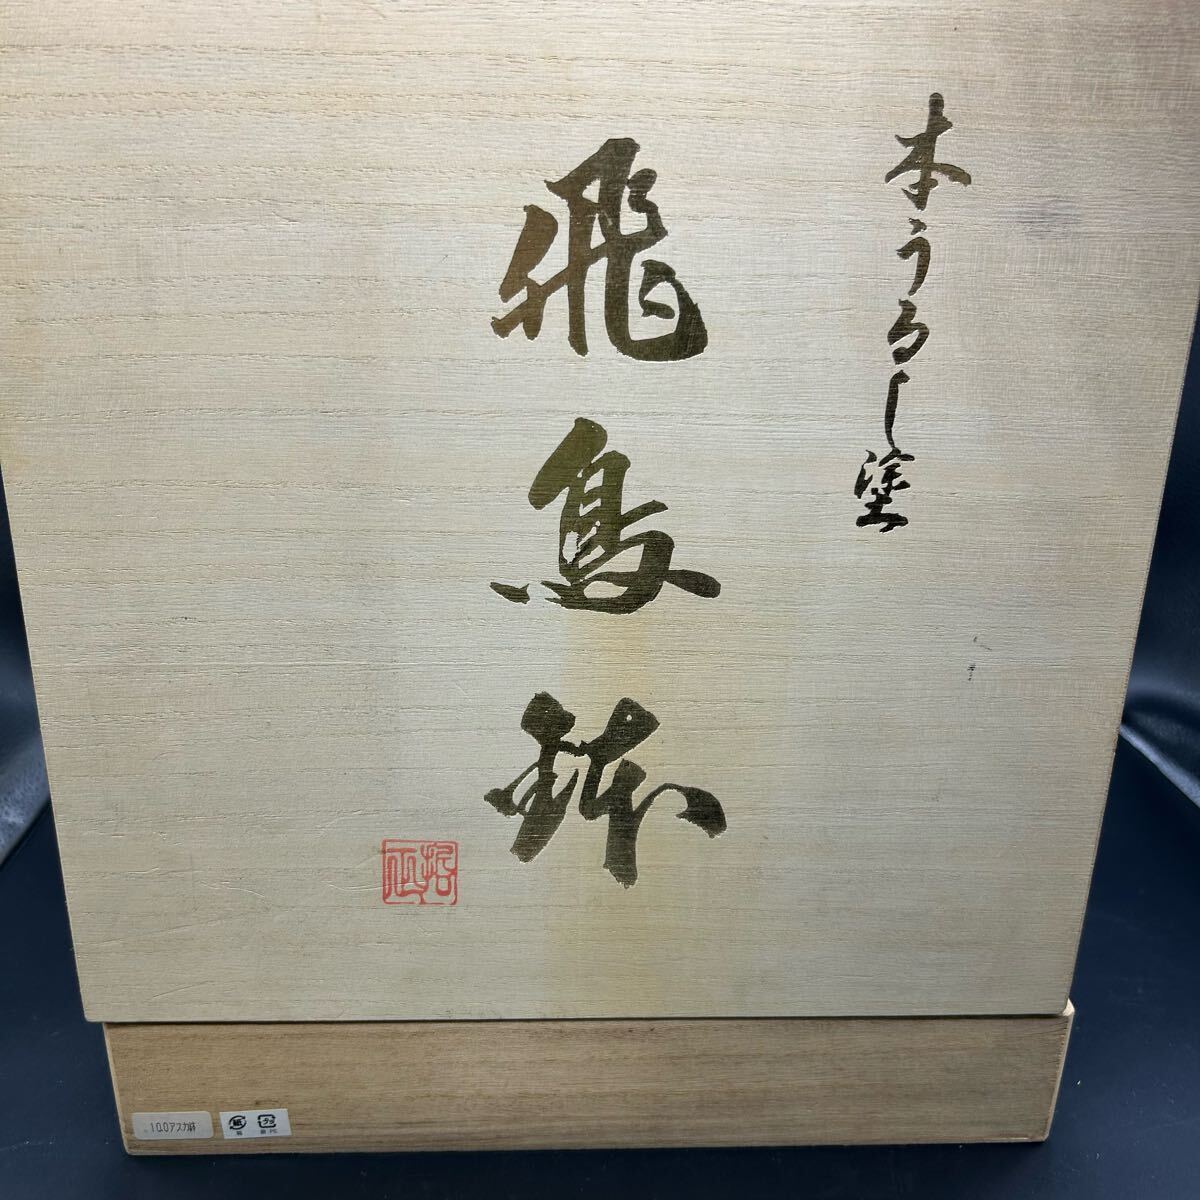 本うるし塗
飛鳥鉢
10.0アスカ鉢
紙
プラ